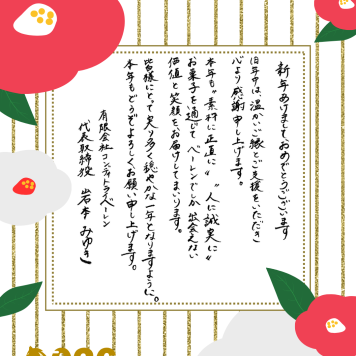 新年あけましておめでとうございます
旧年中は、温かいご縁とご支援をいただき
心より感謝申し上げます。
本年も〝素材に正直に〟〝人に誠実に〟
お菓子を通じて ベーレンでしか出会えない
価値と笑顔をお届けしてまいります。
皆様にとって実り多く穏やかな一年となりますように。
本年もどうぞよろしくお願い申し上げます。
有限会社コンディトライベーレン
代表取締役 岩本 みゆき